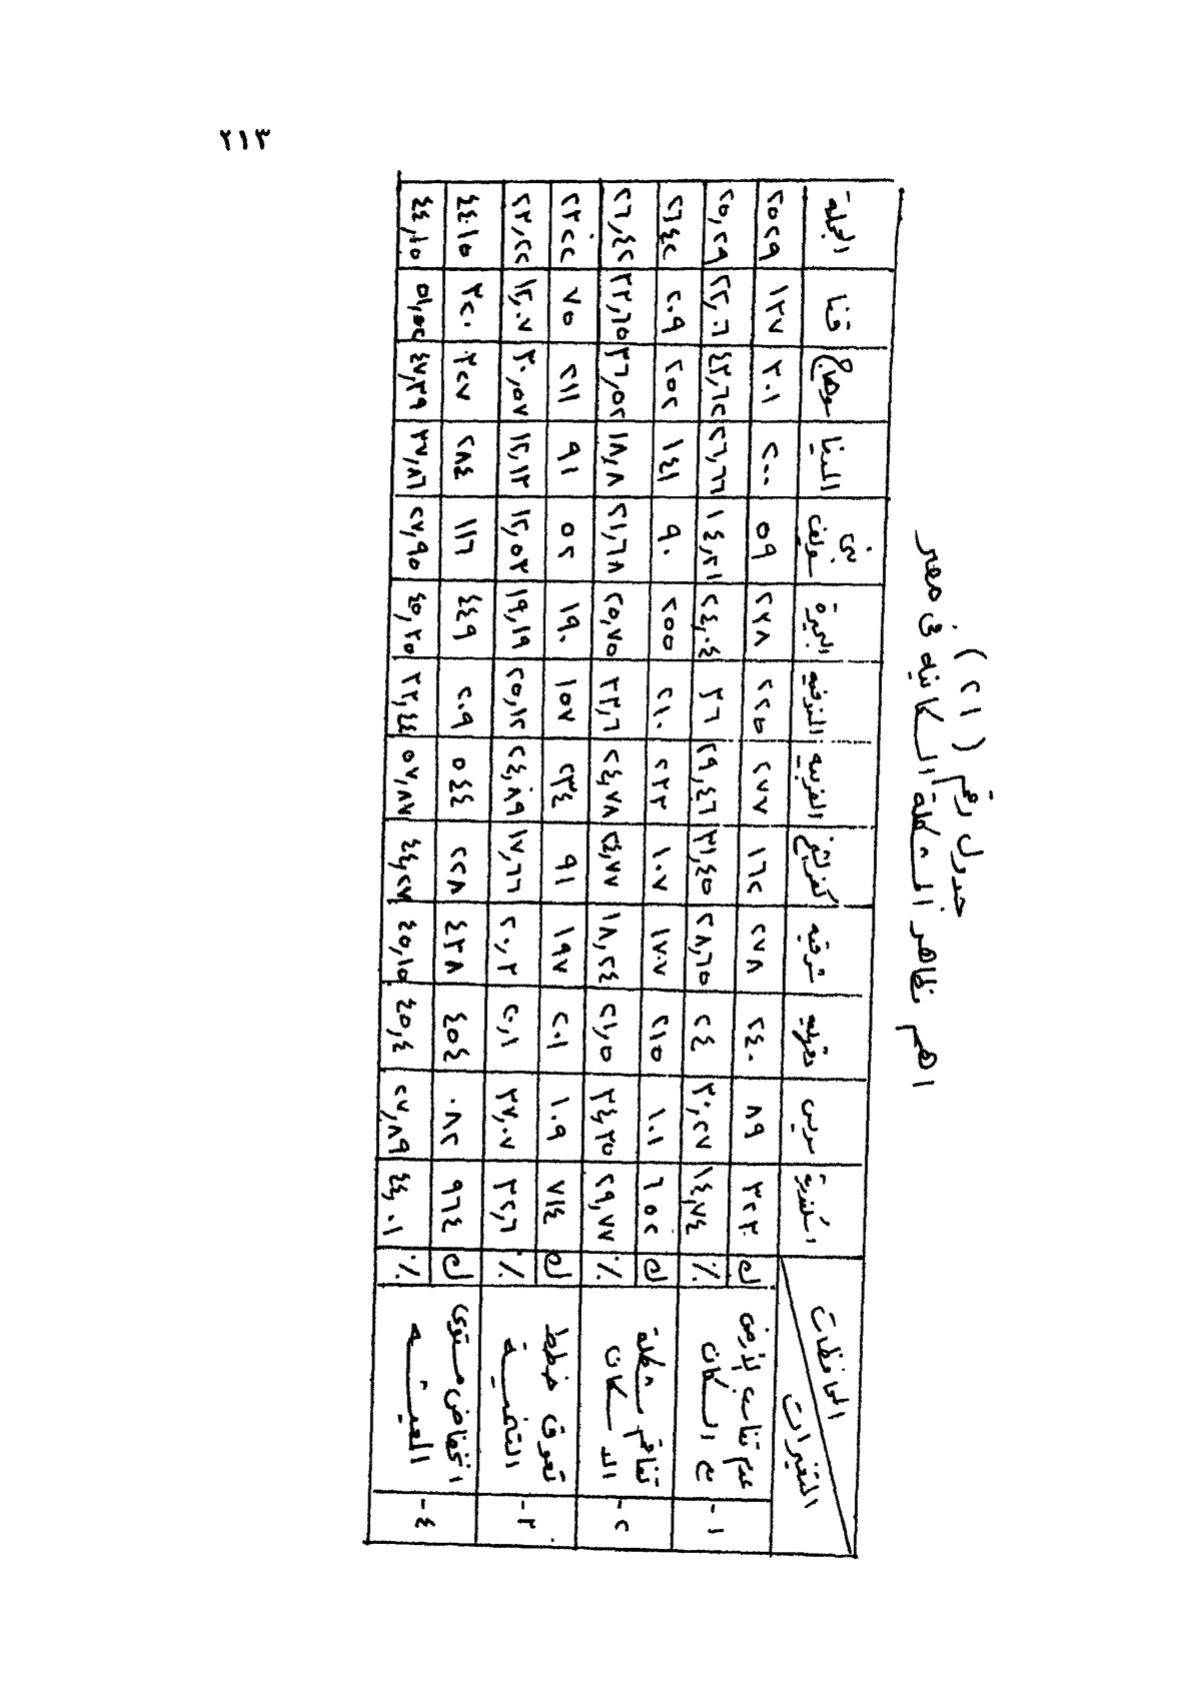 ٢١٣
جدول رقم (٢١)
اهم مظاهر المشكلة السكانيه فى مصر
المحافظات المتغيرات اسكندرية سويس دقهليه شرقيه كفر الشيخ الغربيه المنوفيه الجيزة بنى سويف المنيا سوهاج قنا الجملة
١- عدم تناسب الأرض مع السكان ك ٣٢٣ ٨٩ ٢٤٠ ٢٧٨ ١٦٢ ٢٧٧ ٢٢٥ ٢٣٨ ٥٩ ٢٠٠ ٣٠١ ١٣٧ ٢٥٢٩
٪ ١٤,٧٤ ٣٠,٢٧ ٢٤ ٢٨,٦٥ ٣١,٤٥ ٢٩,٤٦ ٣٦ ٢٤,٠٤ ١٤,٢١ ٢٦,٦٦ ٤٣,٦٢ ٢٢,٠٦ ٢٥,٢٩
٢- تفاقم مشكلة السكان ك ٦٥٢ ١٠١ ٢١٥ ١٧٧ ١٠٧ ٢٣٣ ٢١٠ ٢٥٥ ٩٠ ١٤١ ٢٥٢ ٢٠٩ ٢٦٤٢
٪ ٢٩,٧٧ ٣٤,٣٥ ٢١,٥ ١٨,٢٤ ٢٤,٧٧ ٢٤,٧٨ ٣٣,٦ ٢٥,٧٥ ٢١,٦٨ ١٨,٨ ٣٦,٥٢ ٣٣,٦٥ ٢٦,٤٢
٣- تعوق خطط التنمية ك ٧١٤ ١٠٩ ٢٠١ ١٩٧ ٩١ ٢٣٤ ١٥٧ ١٩٠ ٥٢ ٩١ ٢١١ ٧٥ ٢٣٢٢
٪ ٣٢,٦ ٣٧,٠٧ ٢٠,١ ٢٠,٣ ١٧,٦٦ ٢٤,٨٩ ٢٥,١٢ ١٩,١٩ ١٢,٥٣ ١٢,١٣ ٣٠,٥٧ ١٢,٠٧ ٢٣,٢٢
٤- انخفاض مستوى المعيشه ك ٩٦٤ ٠٨٢ ٤٥٤ ٤٣٨ ٢٢٨ ٥٤٤ ٢٠٩ ٤٤٩ ١١٦ ٢٨٤ ٣٢٧ ٣٢٠ ٤٤١٥
٪ ٤٤,٠١ ٢٧,٨٩ ٤٥,٤ ٤٥,١٥ ٤٤,٢٧ ٥٧,٨٧ ٣٣,٤٤ ٤٥,٣٥ ٢٧,٩٥ ٣٧,٨٦ ٤٧,٣٩ ٥١,٥٢ ٤٤,١٥